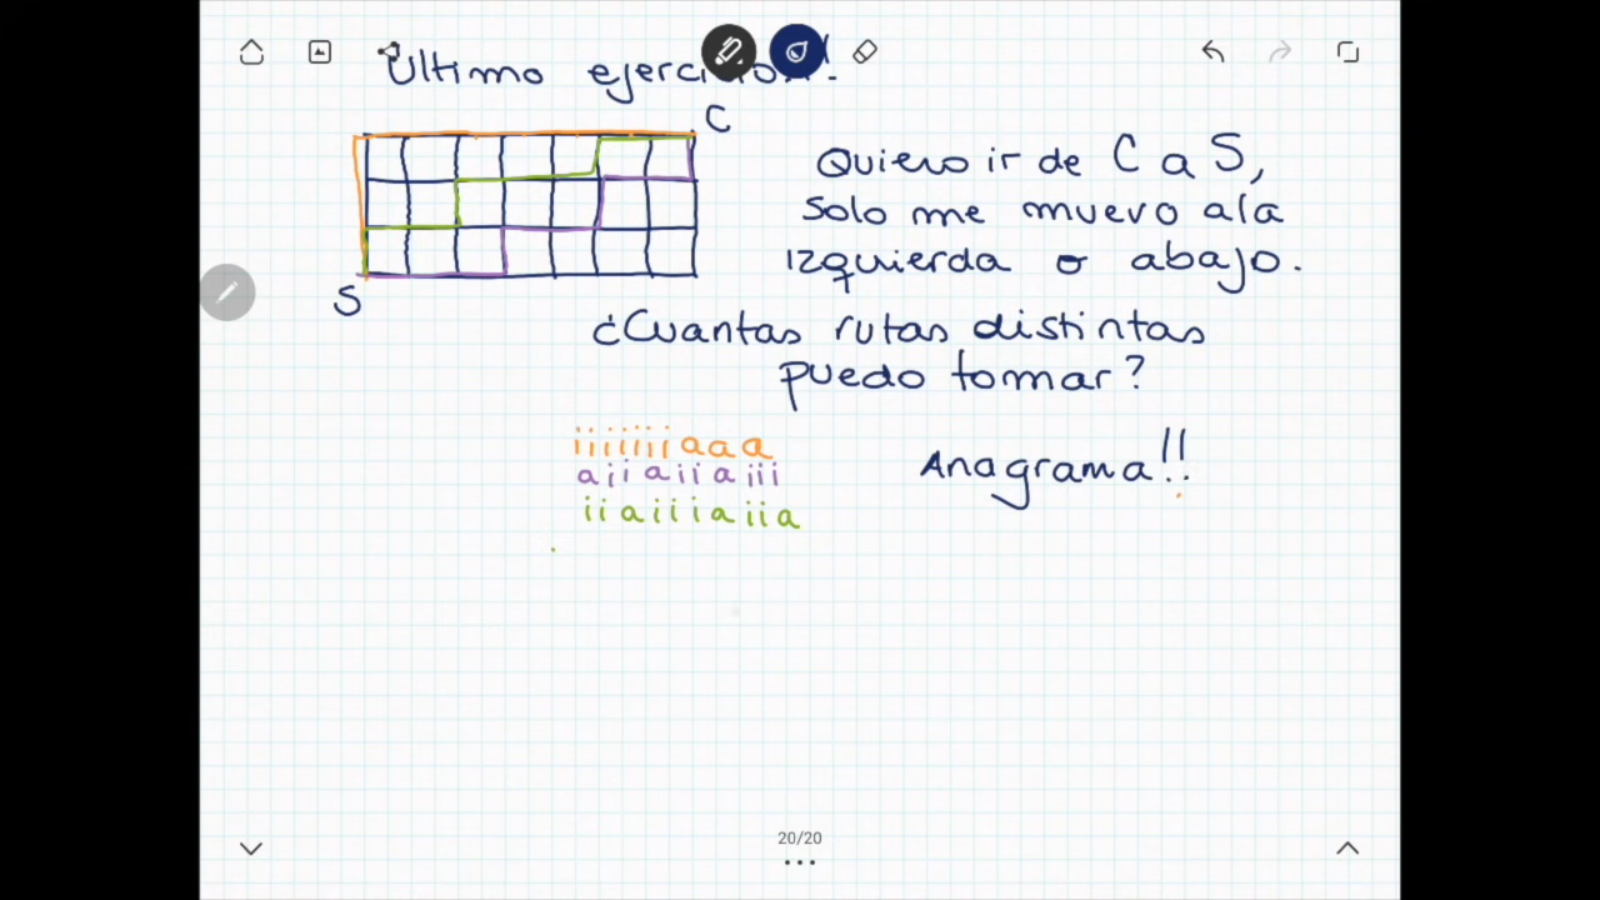 Ultimo ejerci
C
Quiero ir de C a S,
Solo me muevo a la
izquierda o abajo.
S
¿Cuantas rutas distintas
puedo tomar?
iiiiiiiaaa
aiiaiiaiii
iiaiiiaiia
Anagrama!!
20/20